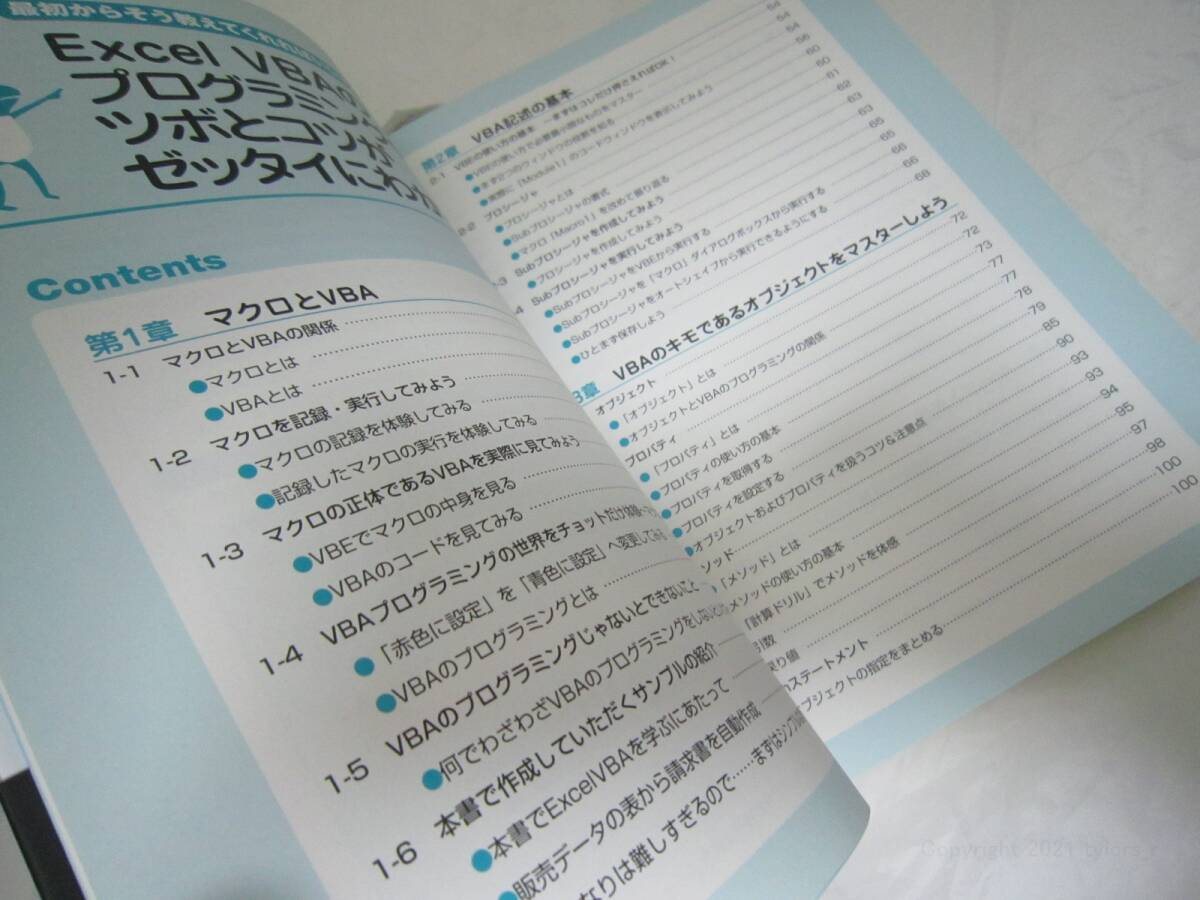 最初からそう教えてくれれば
Excel VBAの
プログラミング
ツボとコツが
ゼッタイにわか
Contents
第1章 マクロとVBA
1-1 マクロとVBAの関係
●マクロとは
●VBAとは
1-2 マクロを記録・実行してみよう
●マクロの記録を体験してみる
●記録したマクロの実行を体験してみる
1-3 マクロの正体であるVBAを実際に見てみよう
●VBEでマクロの中身を見る
●VBAのコードを見てみる
1-4 VBAプログラミングの世界をチョットだけ体験
●「赤色に設定」を「青色に設定」へ変更してみる
●VBAのプログラミングとは
1-5 VBAのプログラミングじゃないとできないこと
●何でわざわざVBAのプログラミングをしないと
1-6 本書で作成していただくサンプルの紹介
●本書でExcelVBAを学ぶにあたって
●販売データの表から請求書を自動作成
なりは難しすぎるので……まずはシンプル
第2章 VBA記述の基本
2-1 VBEの使い方の基本 ―まずはコレだけ押さえればOK！ 54
●VBEの使い方で必要最小限なものをマスター 54
●まず2つのウィンドウの役割を知る 54
●実際に「Module1」のコードウィンドウを表示してみよう 56
2-2 プロシージャ 60
●プロシージャとは 60
●Subプロシージャの書式 61
●マクロ「Macro1」を改めて振り返る 62
-3 Subプロシージャを作成してみよう 63
●プロシージャを作成してみよう 63
4 Subプロシージャを実行してみよう 65
●SubプロシージャをVBEから実行する 65
●Subプロシージャを「マクロ」ダイアログボックスから実行する 66
●Subプロシージャをオートシェイプから実行できるようにする 66
●ひとまず保存しよう 68
3章 VBAのキモであるオブジェクトをマスターしよう
オブジェクト 72
●「オブジェクト」とは 72
●オブジェクトとVBAのプログラミングの関係 73
プロパティ 77
●「プロパティ」とは 77
●プロパティの使い方の基本 78
●プロパティを取得する 79
●プロパティを設定する 85
●オブジェクトおよびプロパティを扱うコツ&注意点 90
ソッド 93
●「メソッド」とは 93
メソッドの使い方の基本 94
「計算ドリル」でメソッドを体感 95
引数 97
戻り値 98
hステートメント 100
ブジェクトの指定をまとめる 100
Copyright 2021